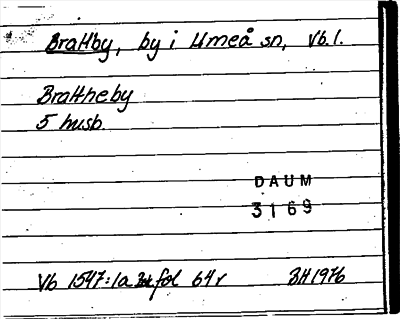 Brattby, by i Umeå sn, Vb.l.
Brattheby
5 husb.
DAUM
3169
Vb 1547:1a fol 64r BH 1976